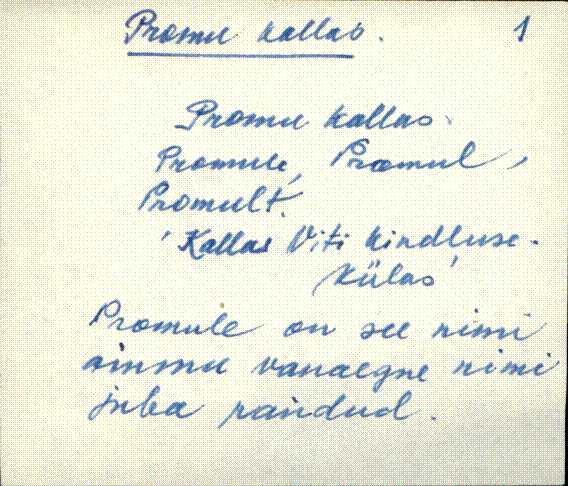 Promu kallas. 1
Promu kallas.
Promule, Promul,
Promult.
'Kallas Viti kindluse-
külas'
Promule on see nimi
ammu vanaegne nimi
juba pandud.